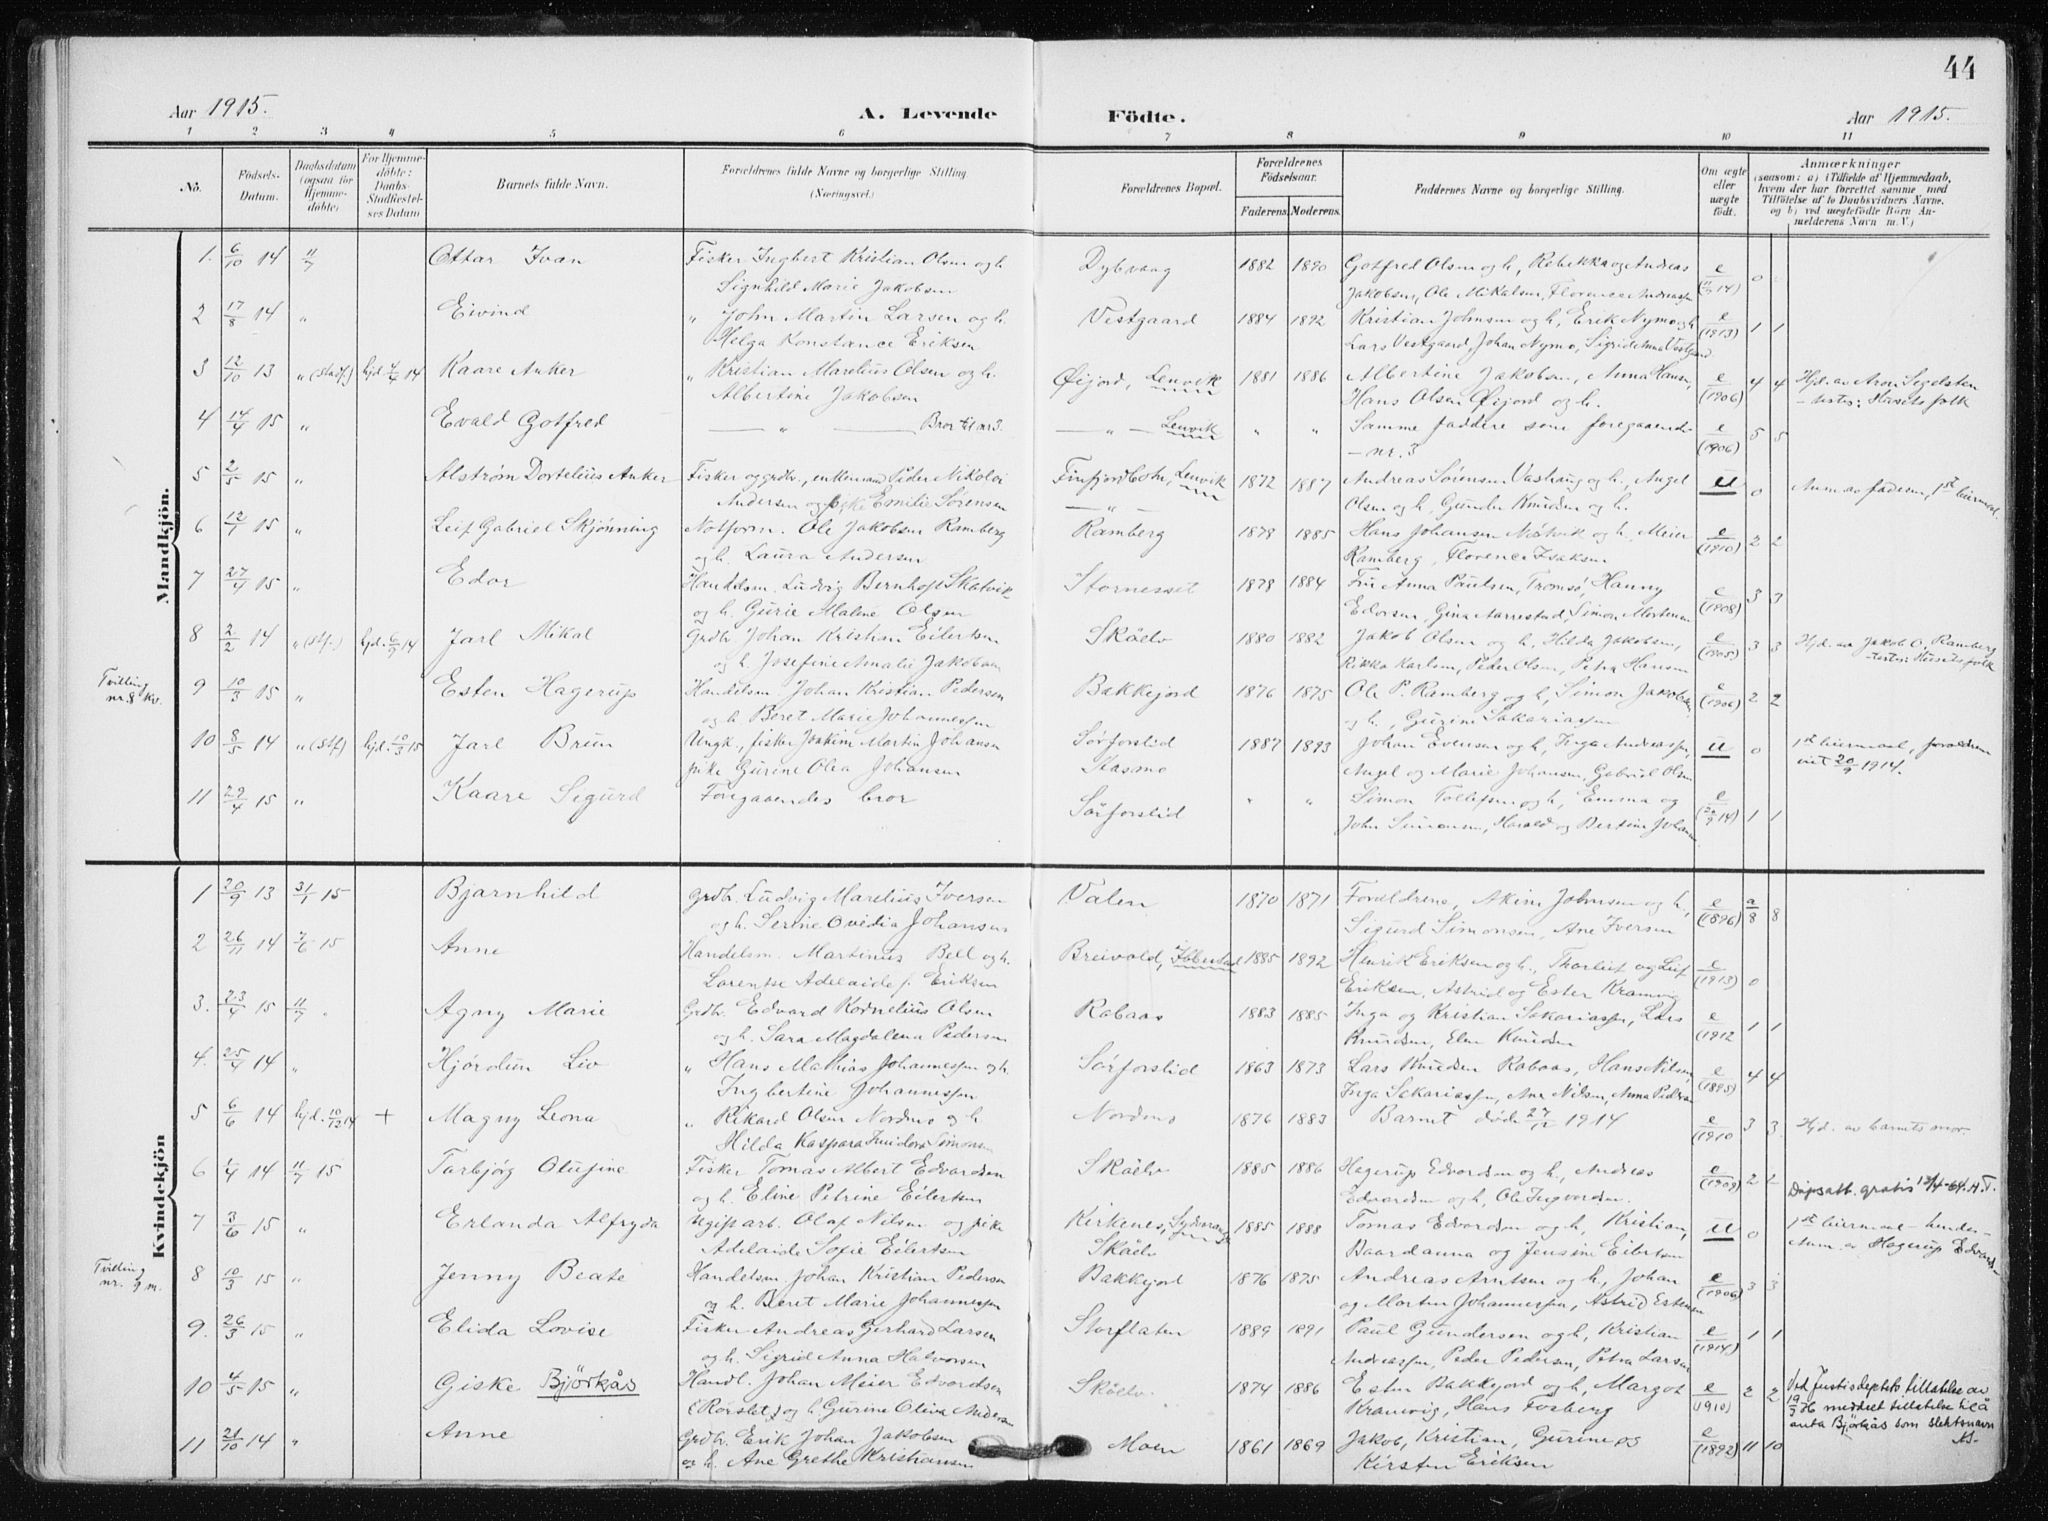 44
Aar 1915. A. Levende Födte. Aar 1915.
1 2 3 4 5 6 7 8 9 10 11
No. Födsels-Datum. Daabsdatum (ogsaa for Hjemme-döbte) For Hjemme-döbte: Daabs-Stadfæstel-ses Datum Barnets fulde Navn. Forældrenes fulde Navne og borgerlige Stilling (Næringsvei.) Forældrenes Bopæl. Forældrenes Födselsaar. Faderens Moderens. Faddernes Navne og borgerlige Stilling. Om ægte eller uægte födt. Anmærkninger (saasom: a) i Tilfælde af Hjemmedaab, hvem der har forrettet samme med Tilföielse af to Daabsvidners Navne, og b) ved uægtefödte Börn An-melderens Navn m. V.)
Mandkjön.
1. 6/10 14 11/7 Ottar Ivan Fisker Ingbert Kristian Olsen og h. Dybvaag 1882 1890 Gotfred Olsen og h, Rebekka og Andreas e 0
Signhild Marie Jakobsen Jakobsen, Ole Mikalsen, Florence Andreassen
2 17/8 14 " Eivind " John Martin Larsen og h. Vestgaard 1884 1892 Kristian Johnsen og h, Erik Nymo og h e (1913) 1 1
Helga Konstance Eriksen Lars Vestgaard, Johan Nymo, Sigrid Anna Vestgaard
3 12/10 13 " (stadf.) hjd. 7/4 14 Kaare Anker " Kristian Marelius Olsen og h. Øijord, Lenvik 1881 1886 Albertine Jakobsen, Anna Hansen, e (1906) 4 4 Hjd. av Aron Segelsten
Albertine Jakobsen Hans Olsen Øijord og h. - testes: Husets folk
4 14/4 15 " Evald Gotfred — " — Bror til nr 3. — " — Lenvik " " Samme faddere som foregaaende e (1906) 5 5
- nr. 3
5 2/5 15 " Alstrøm Dortelius Anker Fisker og grdbr., enkemand Peder Nikolai Finfjordbotn, Lenvik 1872 1887 Andreas Sørensen Vashaug og h, Angel u 0 Anm. av faderen, 1st leiermaal.
Andersen og pike Emilie Sørensen — " — Olsen og h, Gunder Knudsen og h.
6 12/1 15 " Leif Gabriel Skjønning Notform. Ole Jakobsen Ramberg Ramberg 1878 1885 Hans Johansen Nesvik og h, Meier e (1910) 2 2
og h. Laura Andersen Ramberg, Florence Isaksen
7 27/4 15 " Edor Handelsm. Ludvig Bernhoft Skatvik Stornesset 1878 1884 Fru Anna Paulsen, Tromsø, Hanny e (1908) 3 3
og h. Gurie Malene Olsen Edvorsen, Gina Aarrestad, Simon Mortensen
8 2/2 14 " (stf.) hjd. 6/9 14 Jarl Mikal Grdbr. Johan Kristian Eilertsen Skåelv 1880 1882 Jakob Olsen og h, Hilda Jakobsen, e (1905) 3 3 Hjd. av Jakob O. Ramberg
og h. Josefine Amalie Jakobsen Rikka Karlsen, Peder Olsen, Petra Hansen - testes: Husets folk
Tvilling nr. 8 kv. 9 10/3 15 " Esten Hagerup Handelsm. Johan Kristian Pedersen Bakkejord 1876 1875 Ole P. Ramberg og h, Simon Jakobsen e (1906) 2 2
og h. Beret Marie Johannessen og h, Gurine Sakariassen
10 8/5 14 " (stf) hjd. 10/3 15 Jarl Brun Ungk., fisker Joakim Martin Johansen Sørforslid 1887 1893 Johan Evensen og h, Inga Andreassen, u 0 1st leiermaal, forældrene
pike Gurine Olea Johansen Kasmo Angel og Marie Johansen, Gabriel Olsen viet 20/9 1914.
11 29/4 15 " Kaare Sigurd Foregaaendes bror Sørforslid " " Simon Tollefsen og h, Emma og e (20/9 14) 1 1
John Simonsen, Harald og Bertine Johansen
Kvindekjön
1 20/9 13 31/1 15 Bjarnhild Grdbr. Ludvig Marelius Iversen Valen 1870 1871 Forældrene, Akim Johnsen og h, e (1896) a/8 8
og h. Serine Ovedia Johansen Sigurd Simonsen, Ane Iversen
2 26/11 14 7/6 15 Anne Handelsm. Martinus Bell og h. Breivold, Ibbestad 1885 1892 Henrik Eriksen og h., Thorleif og Leif e (1913) 0
Lorentse Adelaide f. Eriksen Eriksen, Astrid og Ester Kramvig
3. 23/4 15 11/7 " Agny Marie Grdbr. Edvard Kornelius Olsen Rabaas 1883 1885 Inga og Kristian Sakariassen, Lars e (1912 1 1
og h. Sara Magdalena Pedersen Knudsen, Elen Knudsen
4. 25/4 14 " Hjørdun Liv " Hans Mathias Johannessen og h. Sørforslid 1863 1873 Lars Knudsen Rabaas, Hans Nilsen, e (1895) 4 4
Ingbertine Johannessen Inga Sakariassen, Ane Nilsen, Anna Pedersen
5 6/6 14 hjd. 10/12 14 + Magny Leona " Rikard Olsen Nordmo og h. Nordmo 1876 1883 Barnet døde 27/12 1914 e (1910 3 3. Hjd. av barnets mor.
Hilda Kaspara Indiora Simonsen
6 1/4 14 11/7 15 Torbjøg Olufine Fisker Tomas Albert Edvardsen Skåelv 1885 1886 Hagerup Edvardsen og h, Andreas e (1909) 2 2
og h. Eline Petrine Eilertsen Edvardsen og h, Ole Ingvordsen. Dåpsatt. gratis 13/4-64. A.T.
7 3/6 15 " Erlanda Alfryda Ugift arb. Olaf Nilsen og pike Kirkenes, Sydvaranger 1885 1888 Tomas Edvardsen og h, Kristian, u 0 1st leiermaal - hendes -
Adelaide Sofie Eilertsen Skåelv Baardanna og Jensine Eilertsen Anm. av Hagerup Edvardsen
Tvilling nr. 9 m. 8 10/3 15 " Jenny Beate Handelsm. Johan Kristian Pedersen Bakkejord 1876 1875 Andreas Arntsen og h, Johan e (1906) 3 3
og h. Beret Marie Johannessen og Morten Johannessen, Astrid Estensen
9. 26/3 15 " Elida Lovise Fisker Andreas Gerhard Larsen Storflaten 1889 1891 Paul Gundersen og h, Kristian e (1914) 1 1
og h. Sigrid Anna Halvorsen Andreassen, Peder Pedersen, Petra Larsen
10 4/5 15 " Giske Björkås Handl. Johan Meier Edvardsen Skåelv 1874 1886 Esten Bakkejord og h, Margot e (1910) 2 2 Ved Justisdeptets tillatelse av
(Rørslet) og h. Gurine Oliva Andersen Kramvig, Hans Forsberg meddelt tillatelse til å
anta Björkås som slektsnavn
11 21/10 14 " Anne Grdbr. Erik Johan Jakobsen Moen 1861 1869 Jakob, Kristian, Gurine og e (1892) 11 10
og h. Ane Grethe Kristiansen Kirsten Eriksen